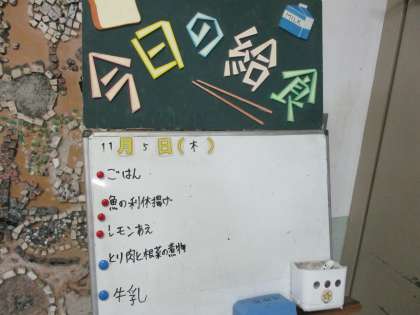 今日の給食
11月5日(木)
ごはん
魚の利休揚げ
レモンあえ
とり肉と根菜の煮物
牛乳